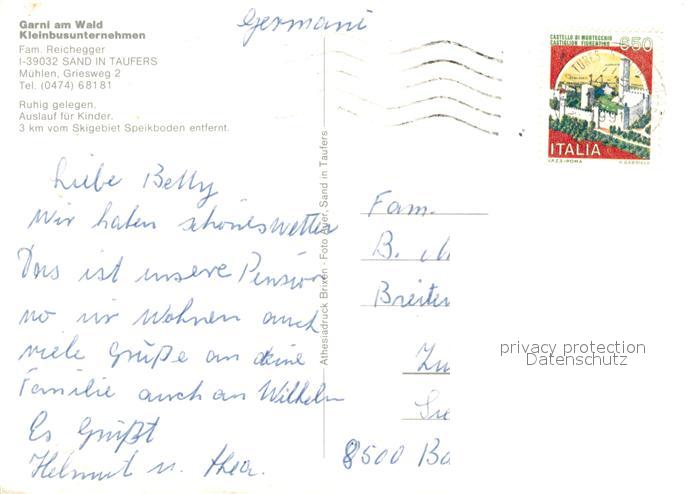 Garni am Wald
Kleinbusunternehmen
Fam. Reichegger
I-39032 SAND IN TAUFERS
Mühlen, Griesweg 2
Tel. (0474) 68181
Ruhig gelegen.
Auslauf für Kinder.
3 km vom Skigebiet Speikboden entfernt.
Germani
CASTELLO DI MONTECCHIO
CASTIGLION FIORENTINO
650
ITALIA
I.P.Z.S.-ROMA
Liebe Betty
Wir haben schönes Wetter
Das ist unsere Pension
wo wir Wohnen auch
viele Grüße an deine
Familie auch an Wilhelm
Es Grüßt
Helmut u. Thea.
Athesiadruck Brixen - Foto Auer, Sand in Taufers
Fam.
B.
Breiten
8500 Ba
privacy protection
Datenschutz